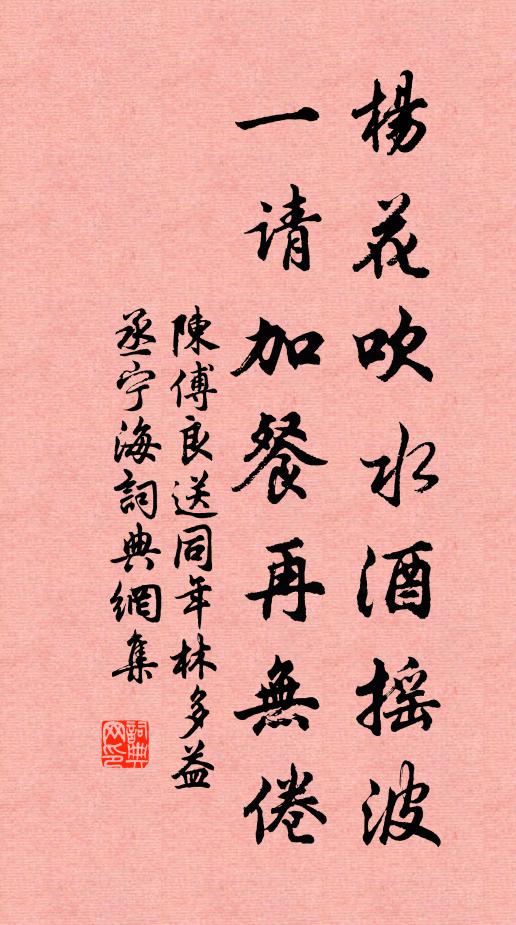 楊花吹水酒摇波
一请加餐再無倦
陳傅良送同年林多益
丞宁海詞典網集
詞典网印